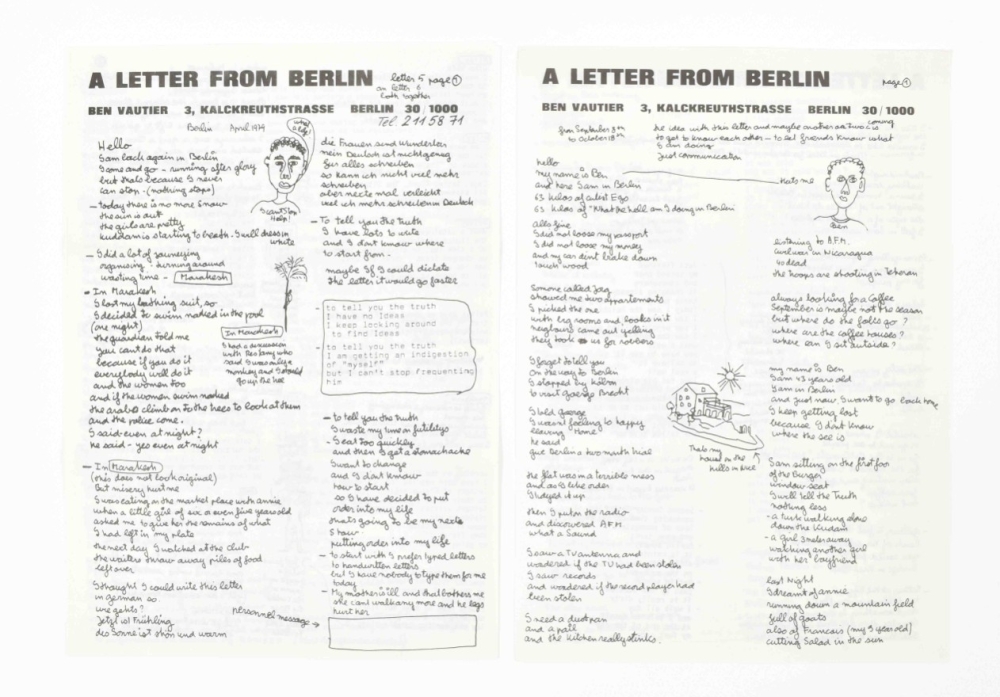 A LETTER FROM BERLIN
letter 5 page 1
BEN VAUTIER 3, KALCKREUTHSTRASSE BERLIN 30/1000
Tel 211 58 71
Berlin April 1979
what a life!
Hello
I am back again in Berlin
I come and go - running after glory
but thats because I never
can stop - (nothing stops)
- today there is no more snow
the sun is out
the girls are pretty
kuddam is starting to breath - I will dress in
white
I cant stop
Help!
- I did a lot of journeying
organising - turning around
wasting time - Marakesh
- In Marakesh
I lost my bathing suit, so
I decided to swim naked in the pool
(one night)
the guardian told me
you cant do that
because if you do it
everybody will do it
and the women too
and if the women swim naked
the arabs climb on to the trees to look at them
and the police come.
I said even at night?
he said - yes even at night
In Marakesh
I had a discussion
with Restany who
said I was only a
monkey and I should
go up the tree
- In Marakesh
(this does not look original)
But misery hurt me
I was eating on the market place with annie
when a little girl of six or even five years old
asked me to give her the remains of what
I had left in my plate
the next day I watched at the club
the waiters throw away piles of food
left over
I thought I could write this letter
in german so
wie gehts?
Jetzt ist Frühling
die Sonne ist shön und warm
personnel message →
die Frauen sind wunderbar
mein Deutsch ist nicht genug
für alles schreiben
so kann ich nicht viel mehr
schreiben
aber next mal vielleicht
viel ich mehr schreiben in Deutsch
- To tell you the truth
I have lots to write
and I dont know where
to start from.
maybe If I could dictate
the letter it would go faster
- to tell you the truth
I have no ideas
I keep looking around
to find ideas
- to tell you the truth
I am getting an indigestion
of "myself"
but I can't stop frequenting
him
- to tell you the truth
I waste my time in futilitys
- I eat too quickly
and then I get a stomachache
I want to change
and I dont know
how to start
so I have decided to put
order into my life
thats going to be my next
show
putting order into my life
- to start with I prefer typed letters
to handwriten letters
but I have nobody to type them for me
today
- My mother is ill and that bothers me
she cant walk any more and he legs
hurt her
A LETTER FROM BERLIN
page 1
BEN VAUTIER 3, KALCKREUTHSTRASSE BERLIN 30/1000
from September 3
to October 18
the idea with this letter and maybe another one or two coming is
to get to know each other - to let friends know what
I am doing
Just communication
hello
my name is Ben
and here I am in Berlin
63 kilos of culest Ego
63 kilos of "What the hell am I doing in Berlin"
thats me
Ben
alles fine
I did not loose my passport
I did not loose my money
and my car dent brake down
touch wood
Someone called Jorg
showed me two appartements
I picked the one
with big rooms and books in it
neighbours came out yelling
they took us for robbers
I forgot to tell you
On the way to Berlin
I stopped by Köln
to visit George Brecht
I told George
I wasnt feeling to happy
leaving "Home"
he said
give Berlin a two month trial
the flat was in a terrible mess
and as I like order
I tidyed it up
then I put on the radio
and discovered A.F.M.
what a sound
I saw a TV antenna and
wondered if the TV had been stolen
I saw records
and wondered if the record player had
been stolen
I need a dustpan
and a pail
and the kitchen really stinks.
listening to A.F.M.
civil war in Nicaragua
40 dead
the troops are shooting in Teheran
always looking for a Coffee
September is maybe not the season
but where do the folks go?
where are the coffee houses?
where can I sit outside?
my name is Ben
I am 43 years old
I am in Berlin
and just now I want to go back home
I keep getting lost
because I dont know
where the see is
Thats my
house in the
hills in nice
I am sitting on the first floo
of the Burger
window seat
I will tell the Truth
nothing less
- a turk walking alone
down the Kudam
- a girl 3 meters away
watching another girl
with her boyfriend
last Night
I dreamt of annie
running down a mountain field
full of goats
also of Francois (my 9 year old)
cutting Salad in the sun